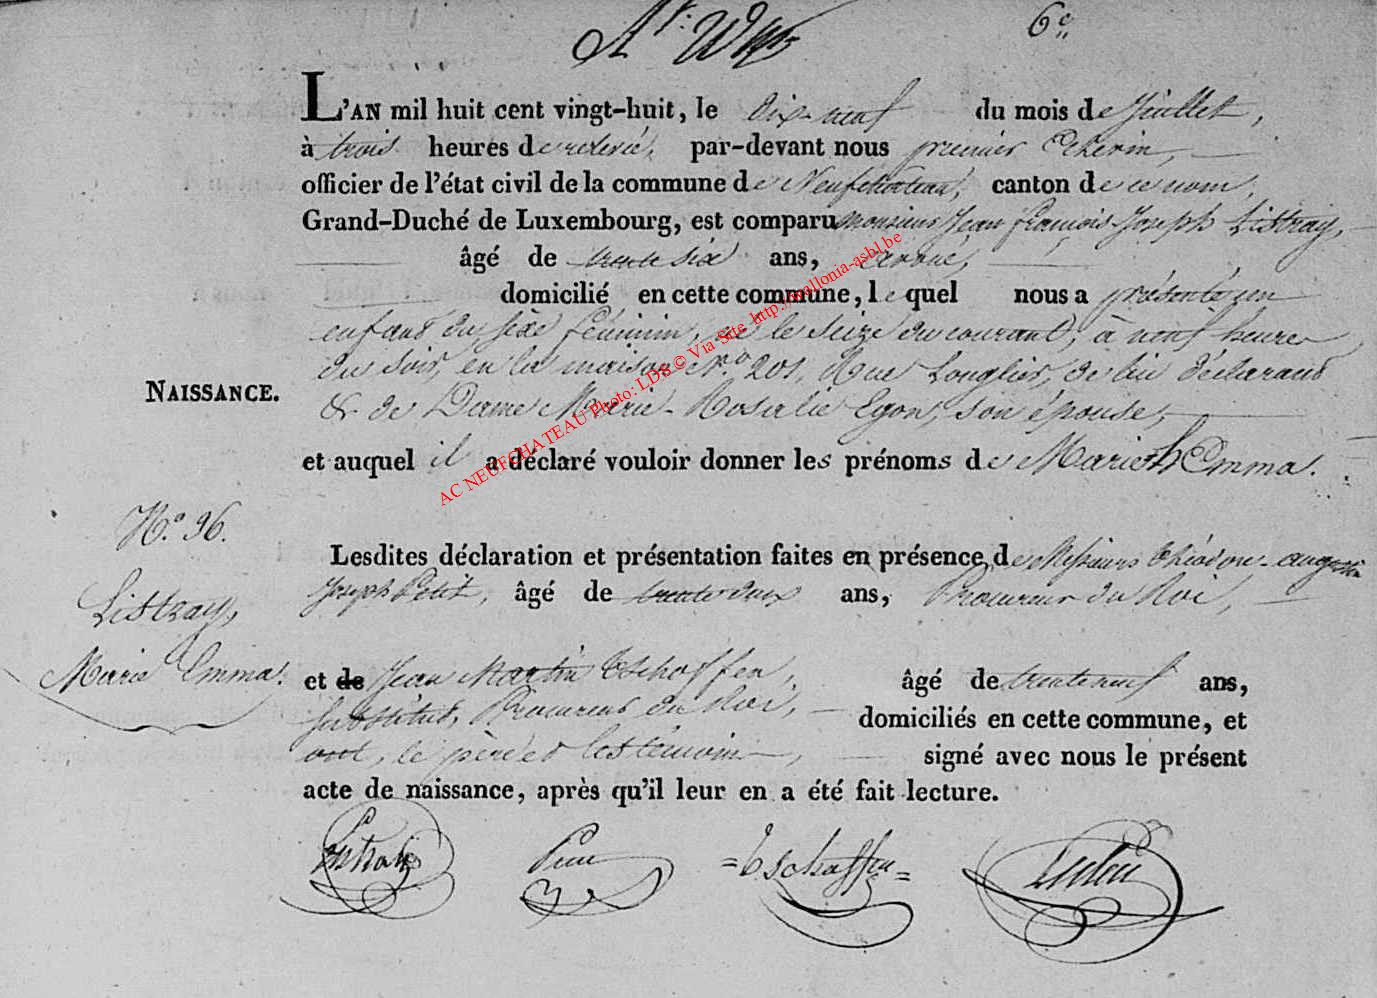 6e
L'AN mil huit cent vingt-huit, le dix-neuf du mois de Juillet,
à trois heures de relevée, par-devant nous premier Echevin,
officier de l'état civil de la commune de Neufchateau, canton de ce nom,
Grand-Duché de Luxembourg, est comparu monsieur Jean françois-Joseph Listray,
âgé de trente six ans, avoué,
domicilié en cette commune, lequel nous a présenté un
enfant du sexe féminin, né le seize du courant, à neuf heures
du soir, en la maison N.° 201, Rue Longlier, de lui déclarant
& de Dame Marie-Rosalie Egon, son épouse,
NAISSANCE.
et auquel il a déclaré vouloir donner les prénoms de Marie Emma.
N.° 96.
Listray,
Marie Emma.
Lesdites déclaration et présentation faites en présence de Messieurs Théodore-augustin
Joseph Petit, âgé de trente deux ans, Procureur du Roi,
et de Jean Martin Tschoffen, âgé de trente neuf ans,
Substitut, Procureur du Roi, domiciliés en cette commune, et
ont, le père et les témoins, signé avec nous le présent
acte de naissance, après qu'il leur en a été fait lecture.
Listray
=Tschoffen=
AC NEUFCHATEAU Photo: LDS © Via Site http://wallonia-asbl.be